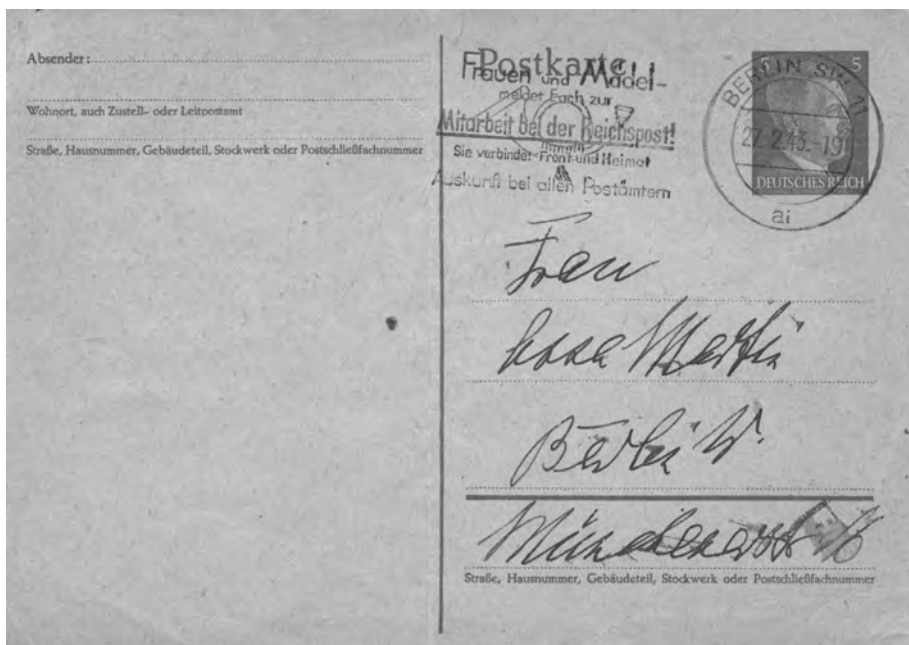 Absender:
Wohnort, auch Zustell- oder Leitpostamt
Straße, Hausnummer, Gebäudeteil, Stockwerk oder Postschließfachnummer
Postkarte
Frauen und Mädel-
meldet Euch zur
Mitarbeit bei der Reichspost!
Sie verbindet Front und Heimat
Auskunft bei allen Postämtern
5 5
BERLIN SW 11
27.2.43.-19
DEUTSCHES REICH
ai
Frau
Martin
Berlin W.
Straße, Hausnummer, Gebäudeteil, Stockwerk oder Postschließfachnummer